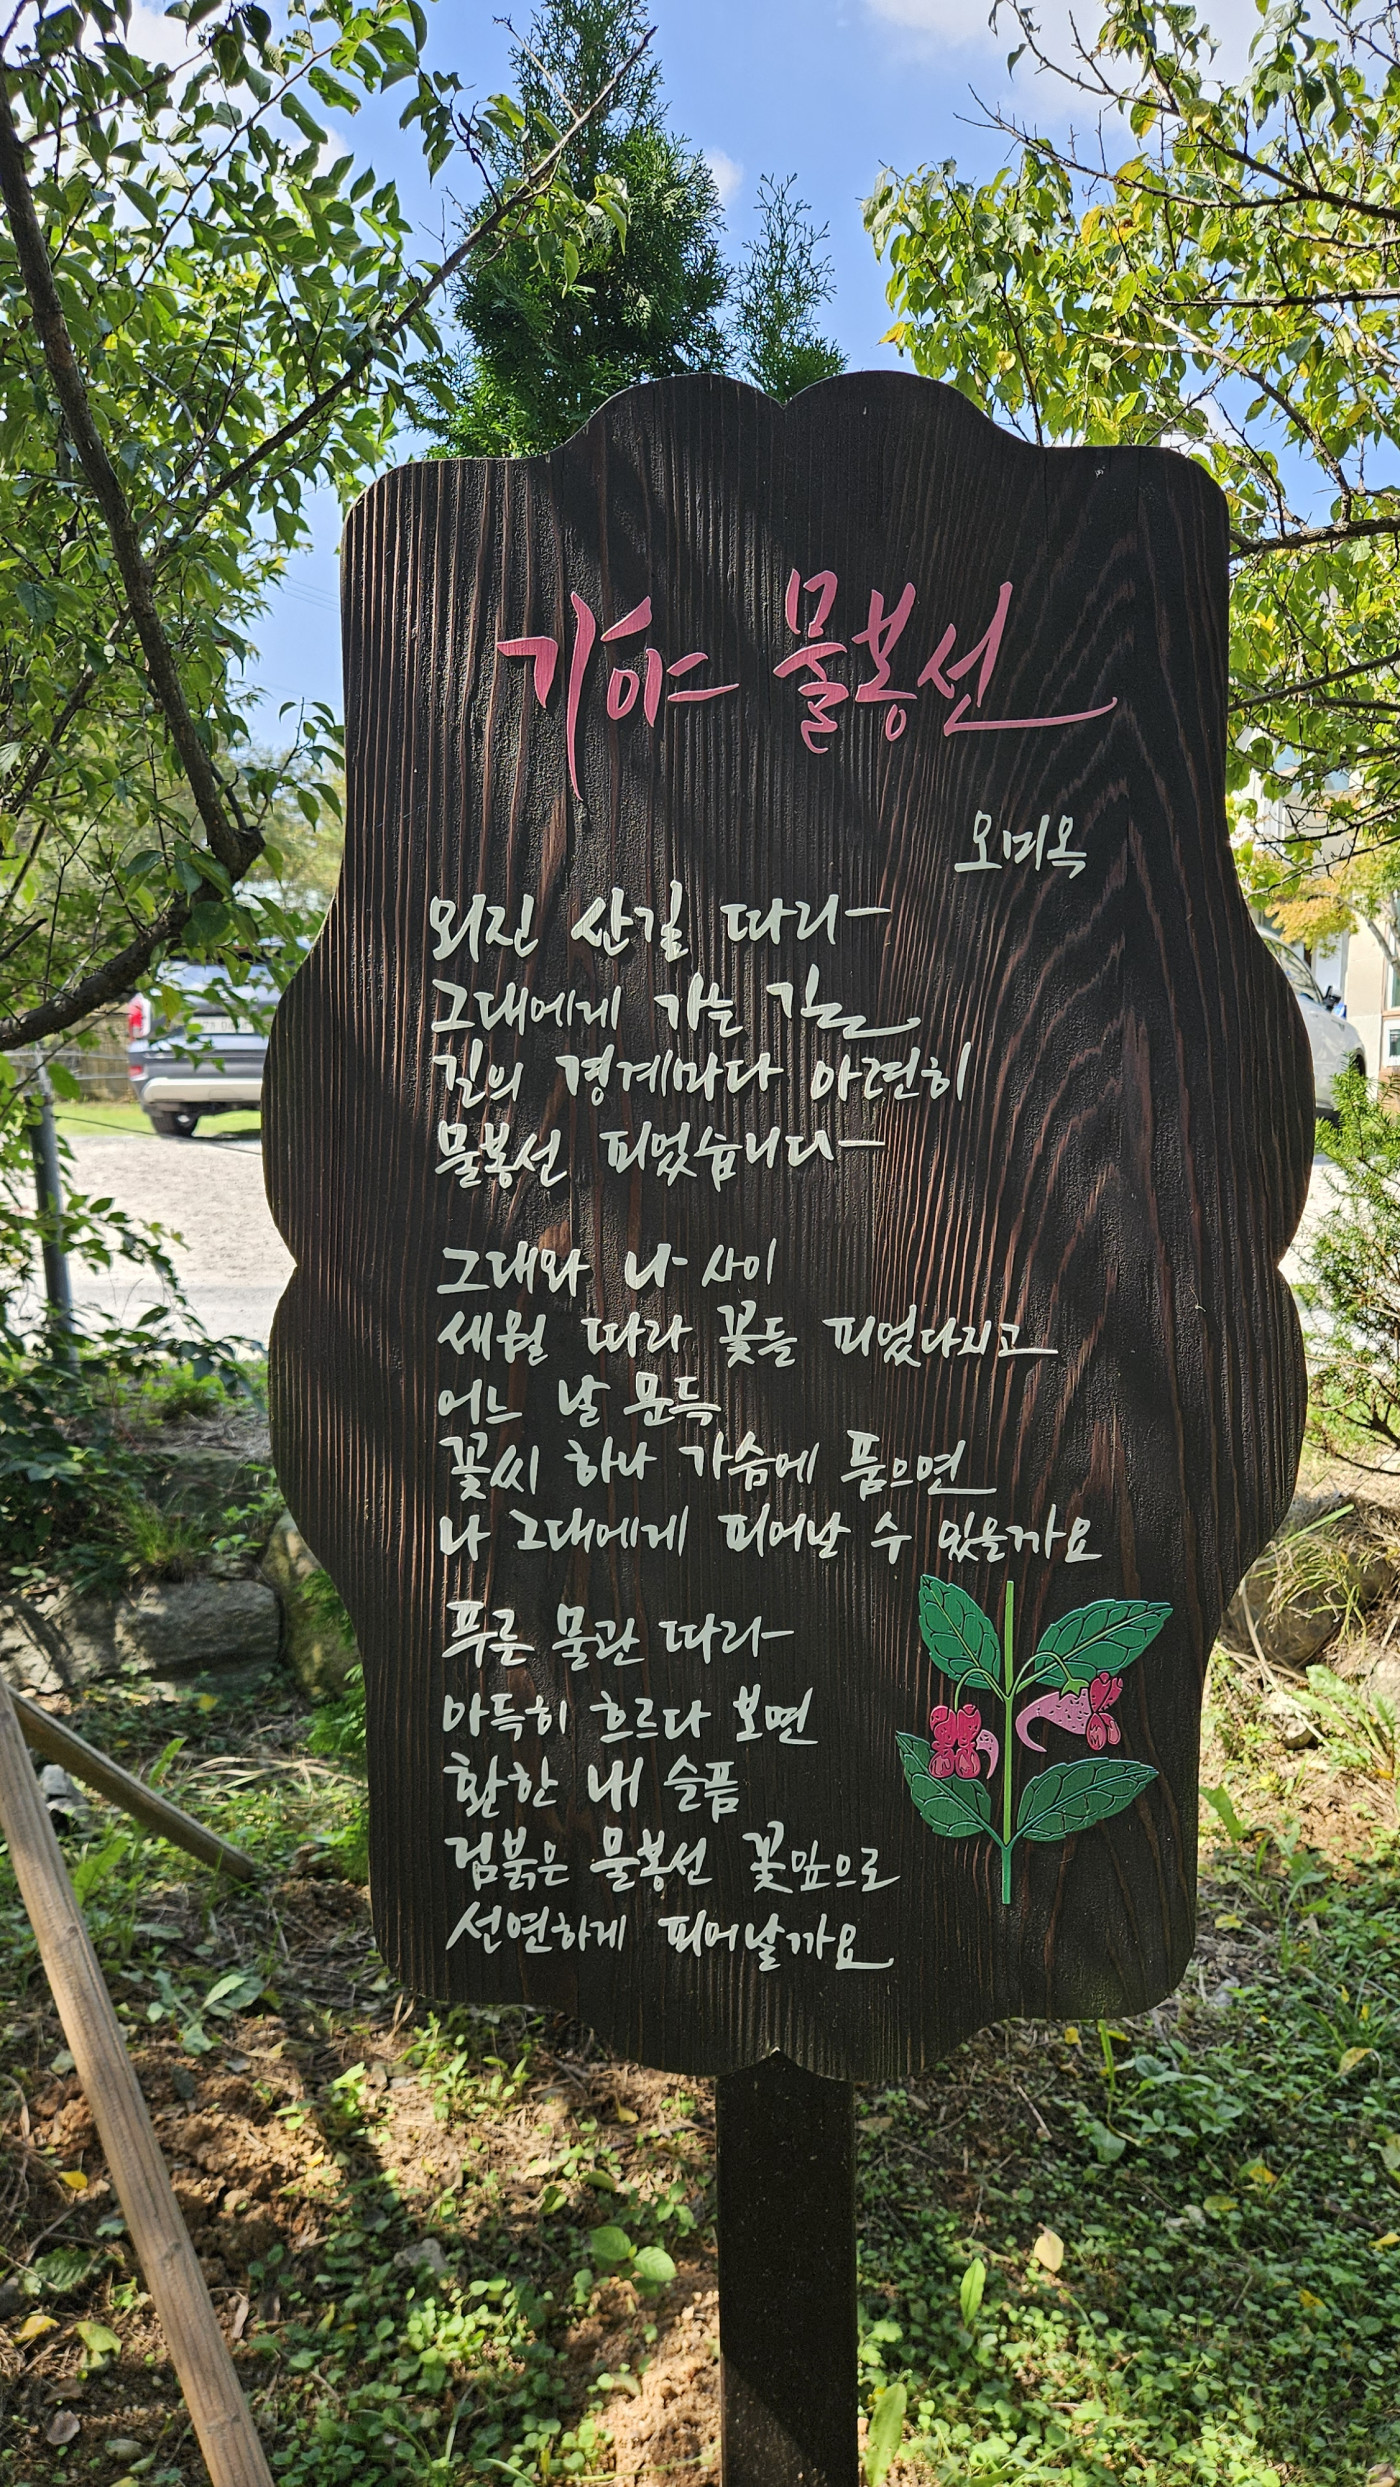 가야 물봉선
오미옥
외진 산길 따라
그대에게 가는 길
길의 경계마다 아련히
물봉선 피었습니다
그대와 나 사이
세월 따라 꽃들 피었다지고
어느 날 문득
꽃씨 하나 가슴에 품으면
나 그대에게 피어날 수 있을까요
푸른 물관 따라
아득히 흐르다 보면
환한 내 슬픔
검붉은 물봉선 꽃잎으로
선연하게 피어날까요